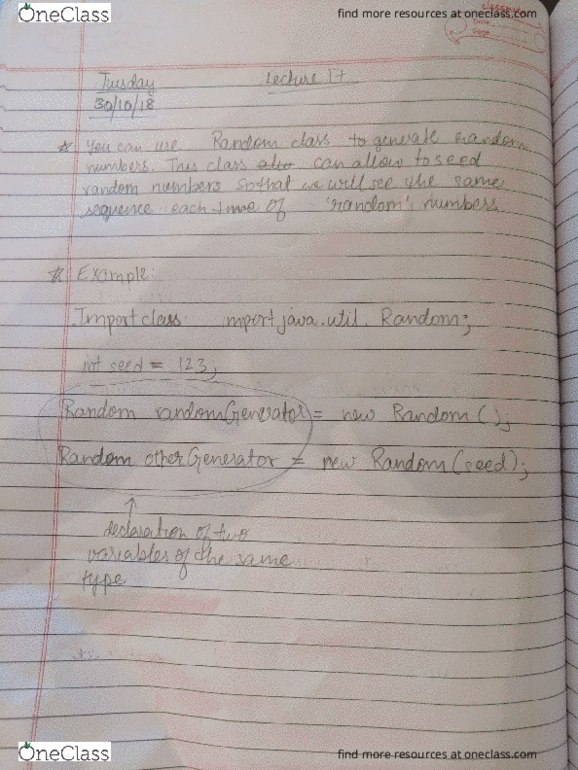 OneClass
find more resources at oneclass.com
classmate
Date
Page
Tuesday
Lecture 17
30/10/18
* You can use Random class to generate random
numbers. This class also can allow to seed
random numbers so that we will see the same
sequence each time of 'random' numbers
* Example:
Import class mport java.util. Random;
int seed = 123;
Random randomGenerator = new Random ();
Random otherGenerator = new Random (seed);
↑
declaration of two
variables of the same
type
OneClass
find more resources at oneclass.com